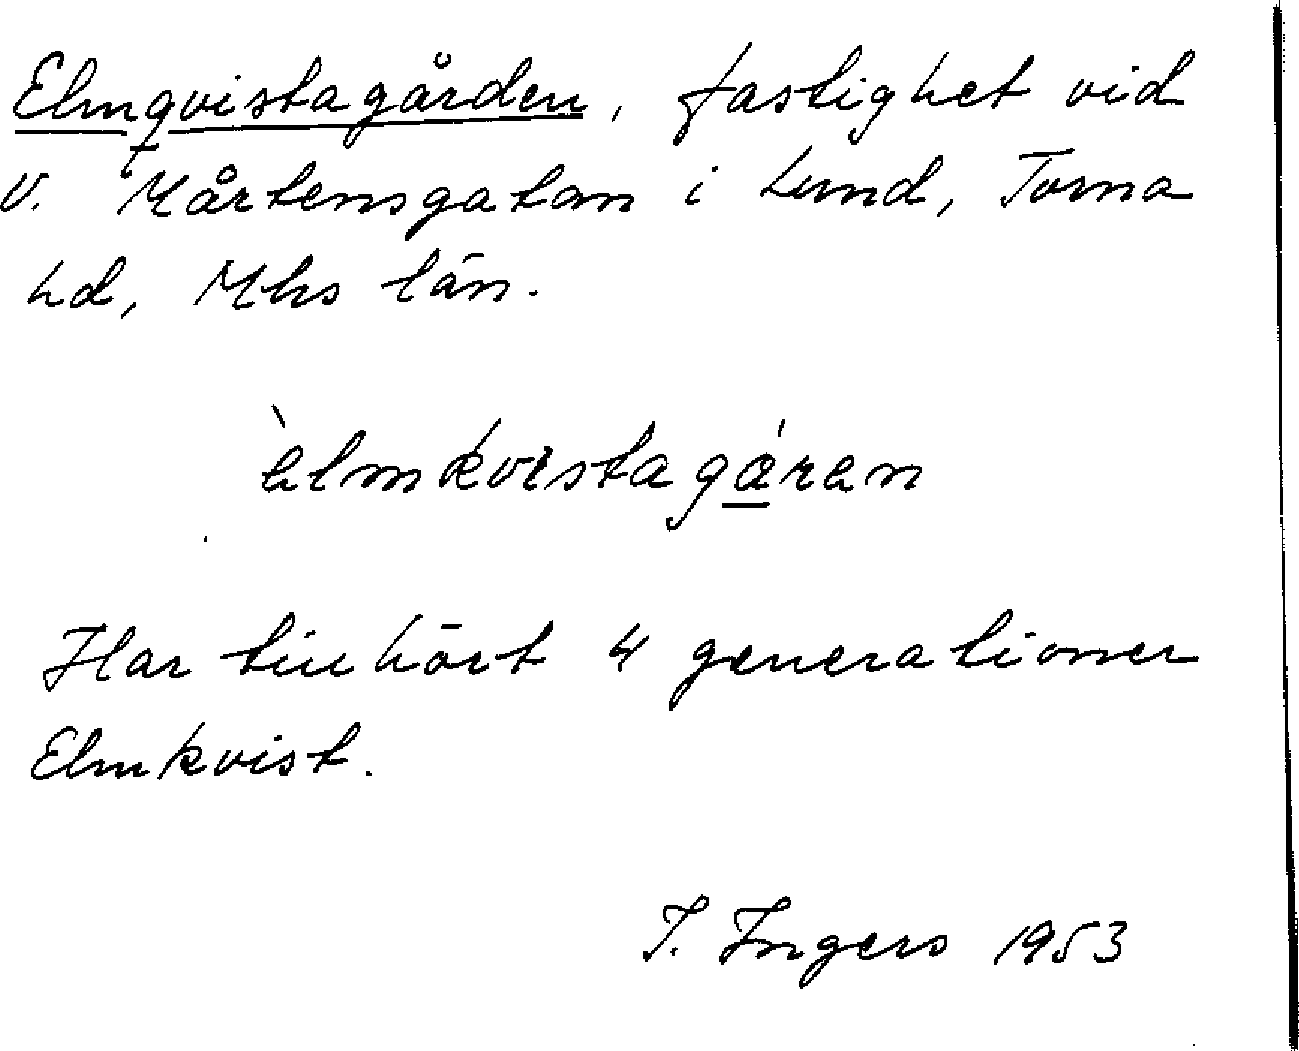 Elmqvistagården, fastighet vid
V. Mårtensgatan i Lund, Torna
hd, Mhs län.
èlmkvistagáren
Har tillhört 4 generationer
Elmkvist.
I. Ingers 1953